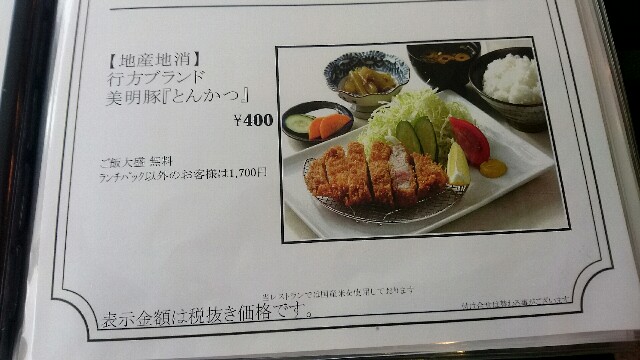 【地産地消】
行方ブランド
美明豚『とんかつ』
¥400
ご飯大盛 無料
ランチパック以外のお客様は1,700円
当レストランでは国産米を使用しております
付け合せは替わる事がございます
表示金額は税抜き価格です。